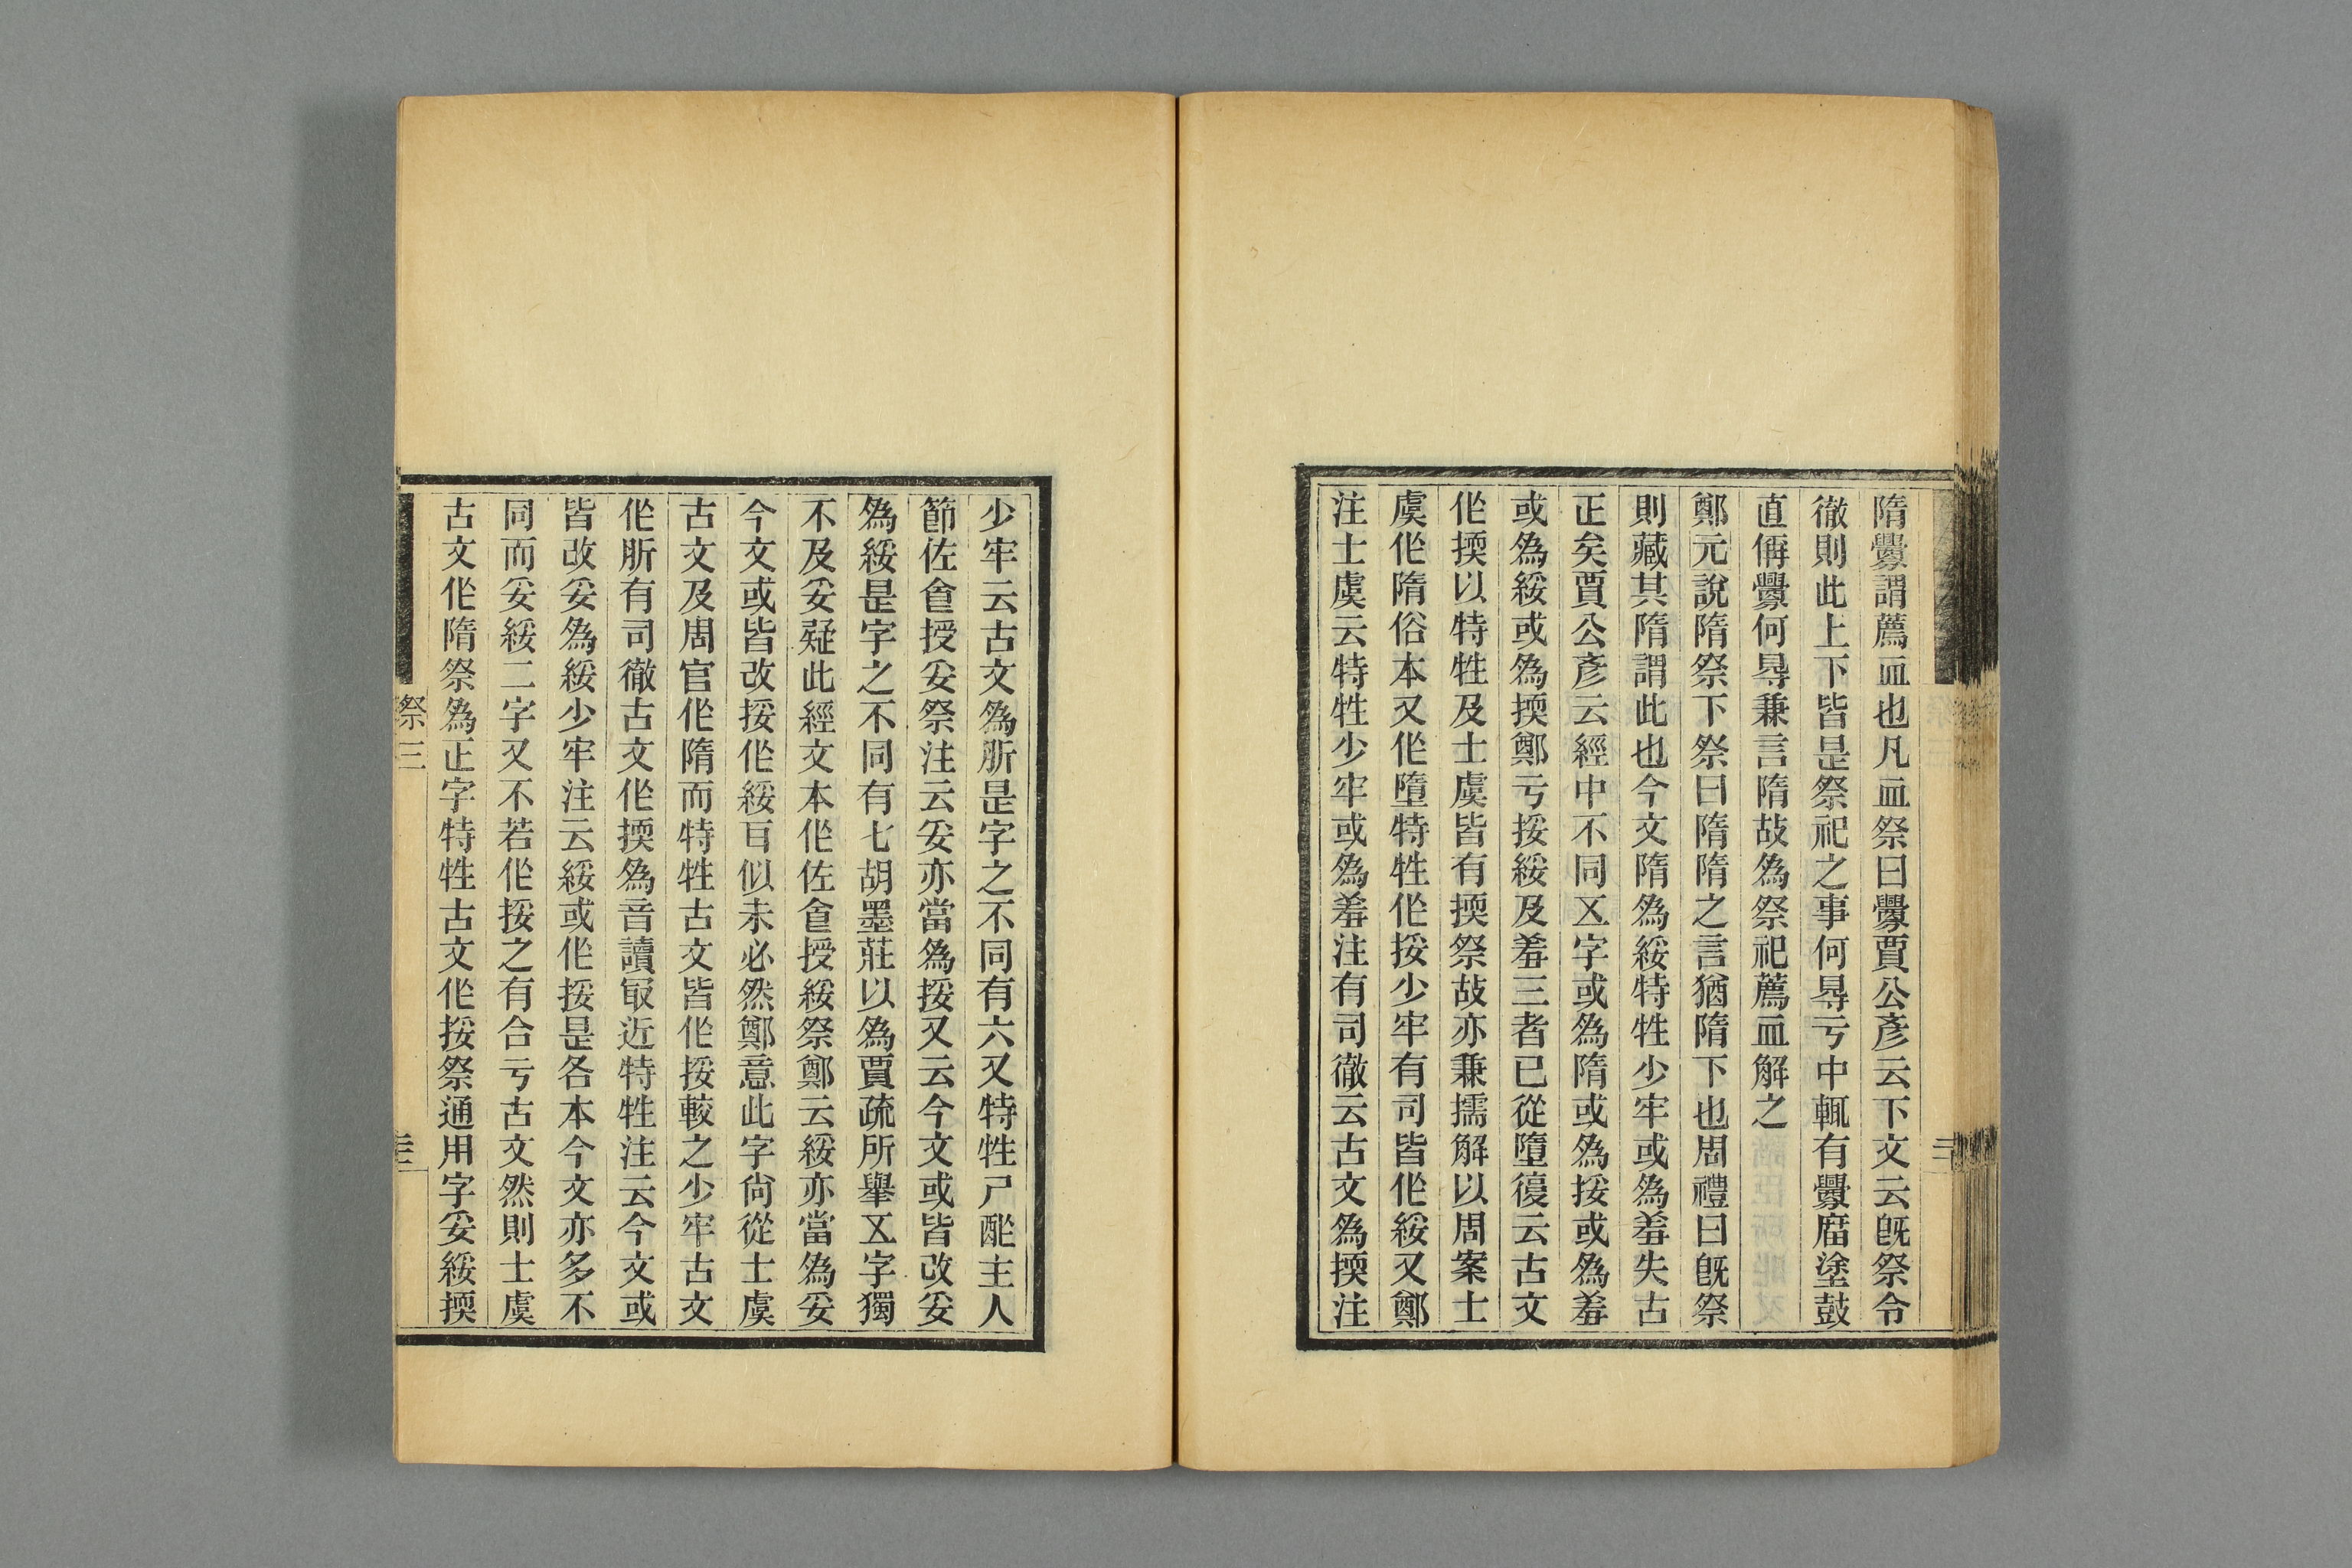 隋釁謂薦血也凡血祭曰釁賈公彥云下文云旣祭令
徹則此上下皆是祭祀之事何㝵亏中輒有釁廟塗鼓
直偁釁何㝵兼言隋故為祭祀薦血解之
鄭元說隋祭下祭曰隋隋之言猶隋下也周禮曰旣祭
則藏其隋謂此也今文隋為綏特牲少牢或為羞失古
正矣賈公彥云經中不同㐅字或為隋或為挼或為羞
或為綏或為擩鄭亏挼綏及羞三者已從墮復云古文
作擩以特牲及士虞皆有擩祭故亦兼擩解以周案士
虞作隋俗本又作墮特牲作挼少牢有司皆作綏又鄭
注士虞云特牲少牢或為羞注有司徹云古文為擩注
少牢云古文為肵是字之不同有六又特牲尸酢主人
節佐食授妥祭注云妥亦當為挼又云今文或皆改妥
為綏是字之不同有七胡墨莊以為賈疏所舉㐅字獨
不及妥疑此經文本作佐食授綏祭鄭云綏亦當為妥
今文或皆改挼作綏耳似未必然鄭意此字尙從士虞
古文及周官作隋而特牲古文皆作挼較之少牢古文
作肵有司徹古文作擩為音讀㝡近特牲注云今文或
皆改妥為綏少牢注云綏或作挼是各本今文亦多不
同而妥綏二字又不若作挼之有合亏古文然則士虞
古文作隋祭為正字特牲古文作挼祭通用字妥綏擩
祭三